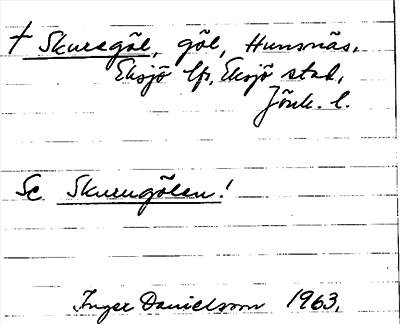 † Skuregöl, göl, Hunsnäs,
Eksjö lfs, Eksjö stad,
Jönk. l.
Se Skurugölen!
Inger Danielsson 1963.